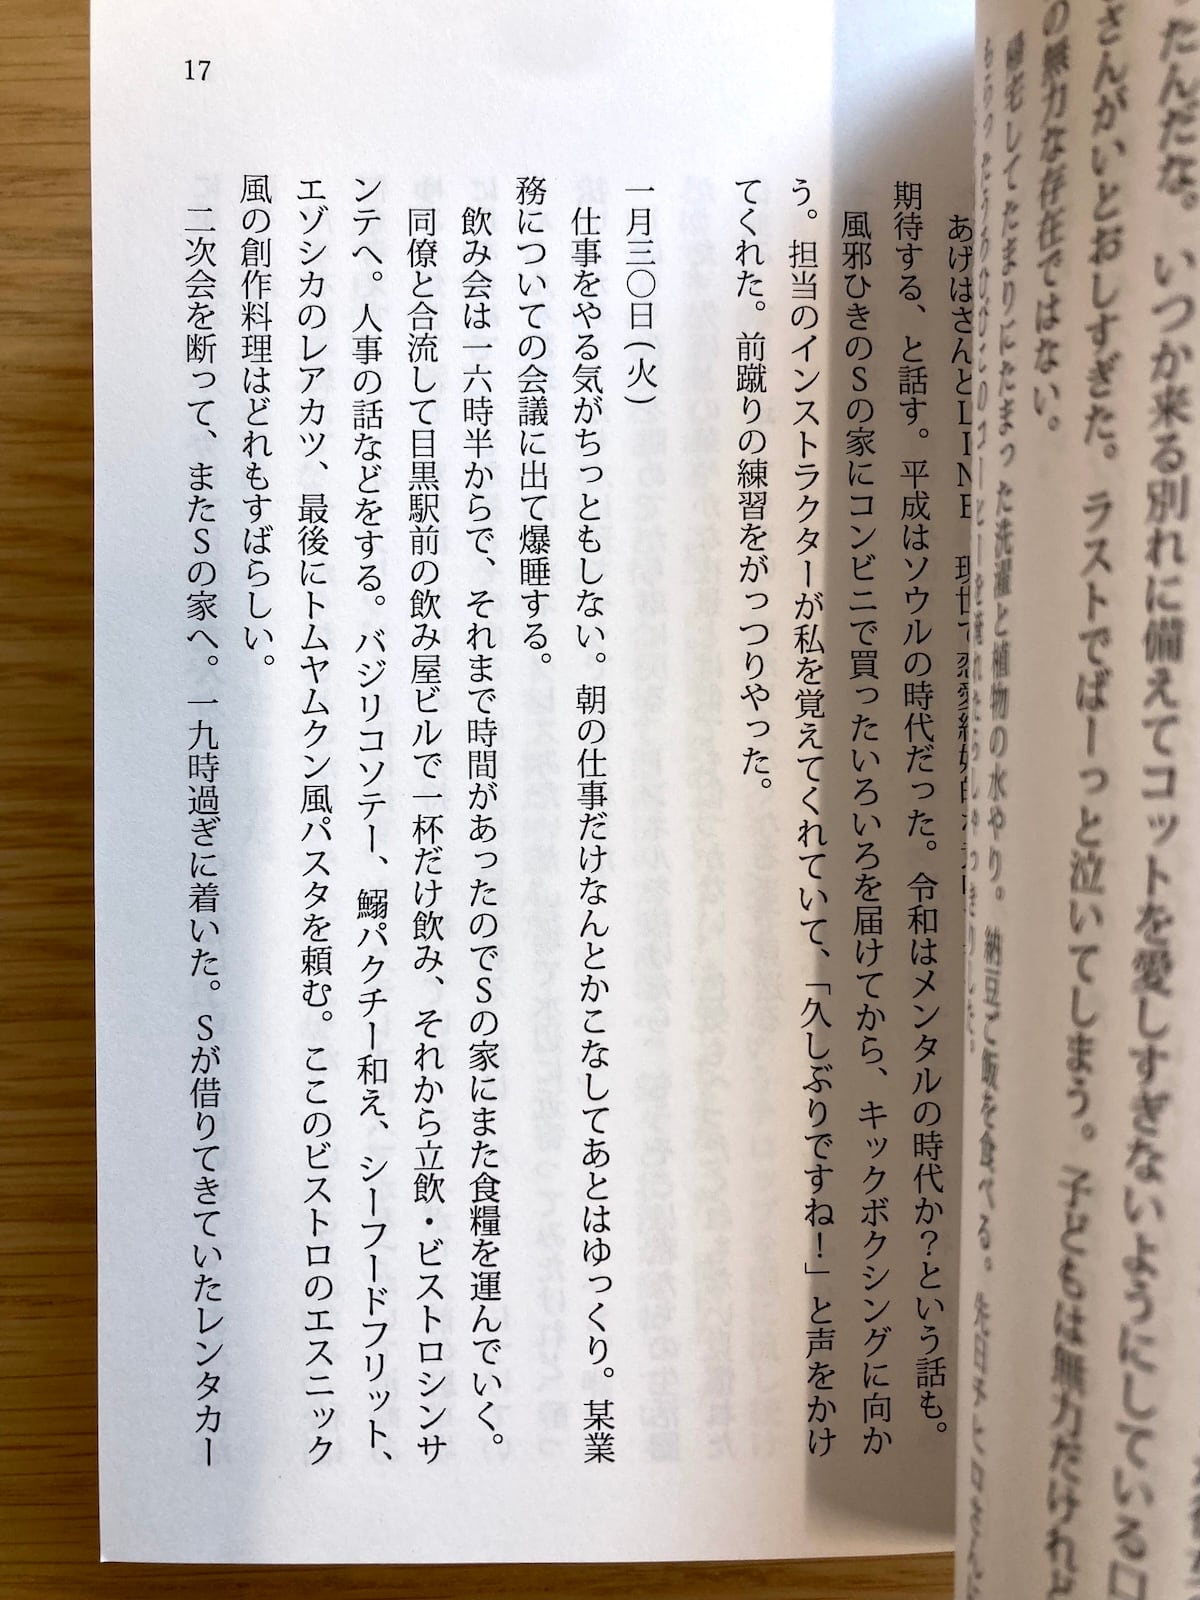 たんだな。いつか来る別れに備えてコットを愛しすぎないようにしている
さんがいとおしすぎた。ラストでばーっと泣いてしまう。子どもは無力だけれど
の無力な存在ではない。
帰宅してたまりにたまった洗濯と植物の水やり。納豆ご飯を食べる。先日
あげはさんとLINE
期待する、と話す。平成はソウルの時代だった。令和はメンタルの時代か?という話も。
風邪ひきのSの家にコンビニで買ったいろいろを届けてから、キックボクシングに向か
う。担当のインストラクターが私を覚えてくれていて、「久しぶりですね!」と声をかけ
てくれた。前蹴りの練習をがっつりやった。
一月三〇日(火)
仕事をやる気がちっともしない。朝の仕事だけなんとかこなしてあとはゆっくり。某業
務についての会議に出て爆睡する。
飲み会は一六時半からで、それまで時間があったのでSの家にまた食糧を運んでいく。
同僚と合流して目黒駅前の飲み屋ビルで一杯だけ飲み、それから立飲・ビストロシンサ
ンテへ。人事の話などをする。バジリコソテー、鰯パクチー和え、シーフードフリット、
エゾシカのレアカツ、最後にトムヤムクン風パスタを頼む。ここのビストロのエスニック
風の創作料理はどれもすばらしい。
二次会を断って、またSの家へ。一九時過ぎに着いた。Sが借りてきていたレンタカー
17